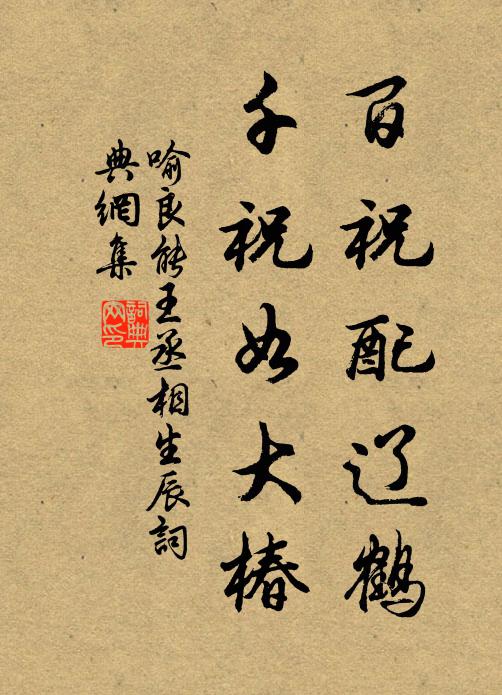 百祝配辽鹤
千祝如大椿
喻良能王丞相生辰词
典網集
詞典
网印